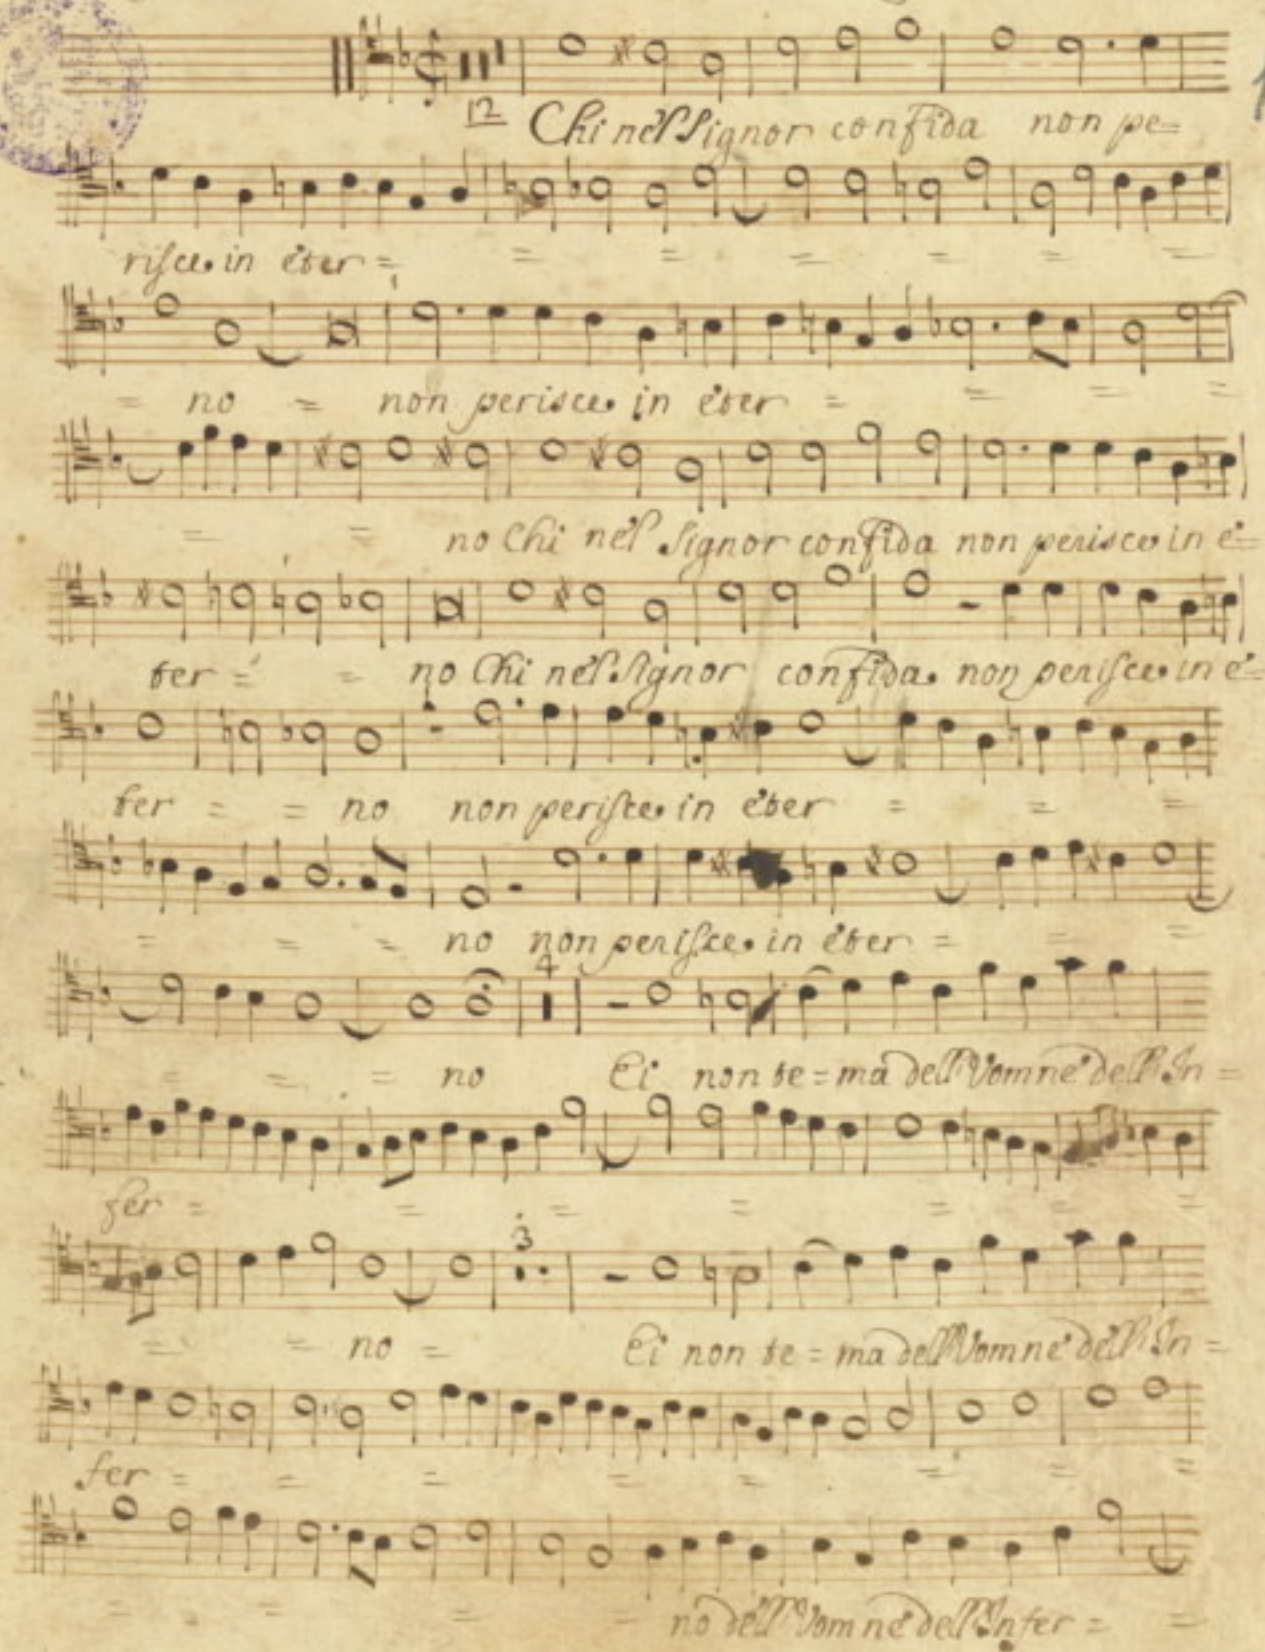 12 Chi nel Signor confida non pe=
risce in eter = = = = = =
= no = non perisce in eter = = = =
= = no Chi nel Signor confida non perisce in e=
ter = = no Chi nel Signor confida non perisce in e=
ter = = no non perisce in eter = = =
= = = no non perisce in eter = = =
4
= = = no Ei non te=ma dell'Vom ne dell'In=
fer = = = = = =
3
= = no = Ei non te=ma dell'Vom ne dell'In=
fer = = = = = = = =
= = = = no dell'Vom ne dell'Infer = =